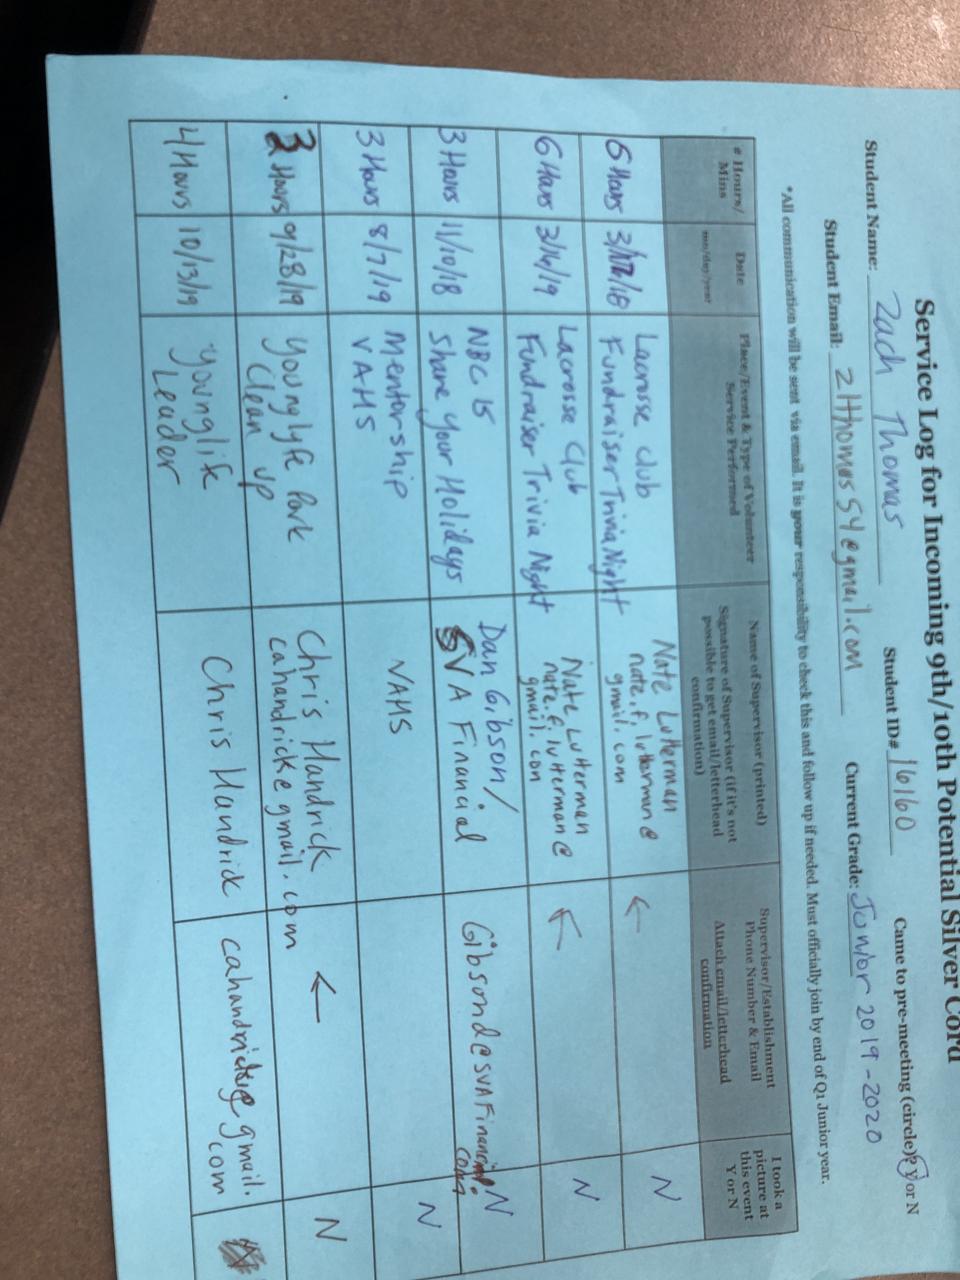 Service Log for Incoming 9th/10th Potential Silver Cord
Student Name: Zach Thomas Student ID# 16160 Came to pre-meeting (circle)? Y or N
Student Email: 2HThomas54@gmail.com Current Grade: Junior 2019-2020
*All communication will be sent via email. It is your responsibility to check this and follow up if needed. Must officially join by end of Q1 Junior year.
# Hours/
Mins
Date
mo/day/year
Place/Event & Type of Volunteer
Service Performed
Name of Supervisor (printed)
Signature of Supervisor (if it's not
possible to get email/letterhead
confirmation)
Supervisor/Establishment
Phone Number & Email
Attach email/letterhead
confirmation
I took a
picture at
this event
Y or N
6 Hours
Lacrosse club
Fundraiser Trivia Night
Nate Lutterman
nate.f.lutterman@
gmail.com
←
N
6 Hours 3/16/19
Lacrosse Club
Fundraiser Trivia Night
Nate Lutterman
nate.f.lutterman@
gmail.com
←
N
3 Hours 11/10/18
NBC 15
Share Your Holidays
Dan Gibson/
SVA Financial
Gibsond@SVAFinancial.
com
N
3 Hours 8/7/19
Mentorship
VAHS
VAHS
N
3 Hours 9/28/19
Younglyfe Park
Clean up
Chris Handrick
cahandrick@gmail.com
←
N
4 Hours 10/13/19
Younglife
Leader
Chris Handrick
cahandrick@gmail.
com